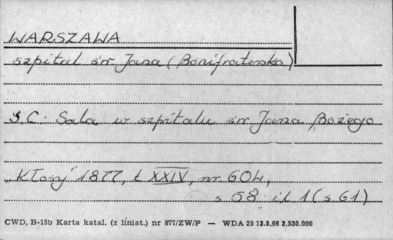 WARSZAWA
szpital św Jana (Bonifraterska)
S.C. Sala w szpitalu św Jana Bożego
„Kłosy" 1877, t. XXIV, nr. 604,
s 58 il 1 (s 61)
CWD, B-15b Karta katal. (z liniat.) nr 877/ZW/P — WDA 29 12.2.66 3,530.000